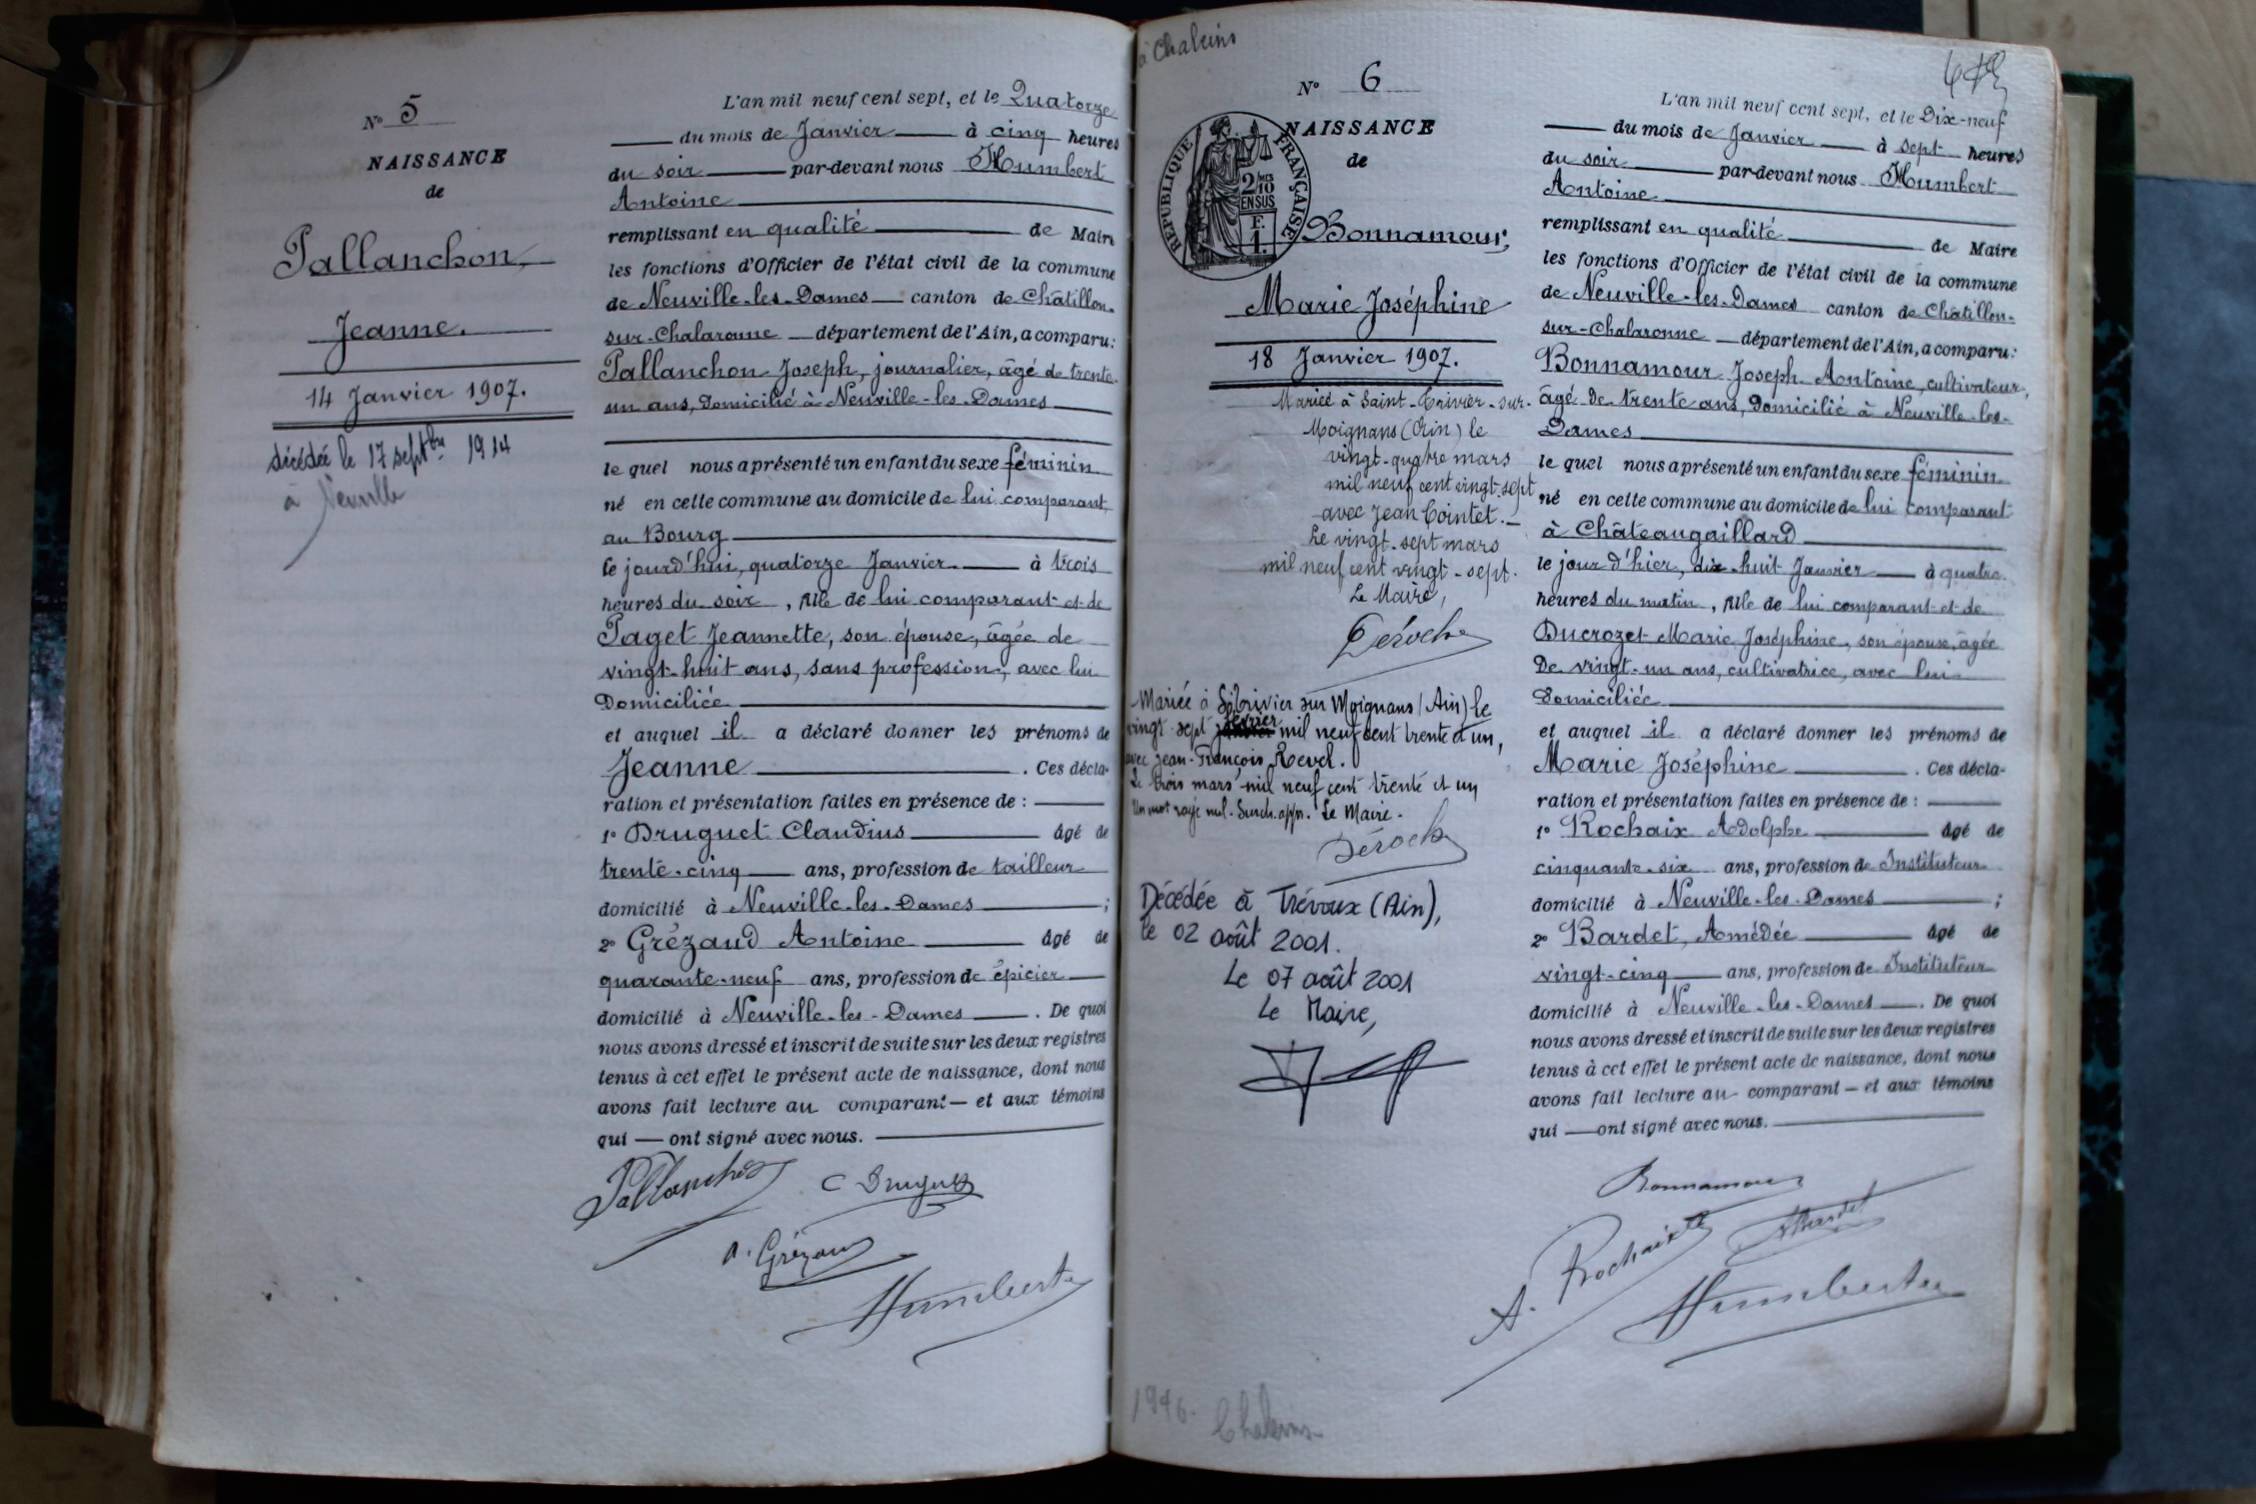 N° 5
NAISSANCE
de
Pallanchon,
Jeanne.
14 Janvier 1907.
décédée le 17 septbre 1914
à Neuville
L'an mil neuf cent sept, et le Quatorze
du mois de Janvier à cinq heures
du soir par-devant nous Humbert
Antoine
remplissant en qualité de Maire
les fonctions d'Officier de l'état civil de la commune
de Neuville-les-Dames canton de Châtillon-
sur-Chalaronne département de l'Ain, a comparu:
Pallanchon Joseph, journalier, âgé de trente-
un ans, domicilié à Neuville-les-Dames
le quel nous a présenté un enfant du sexe féminin
né en cette commune au domicile de lui comparant
au Bourg
le jourd'hui, quatorze Janvier à trois
heures du soir, fille de lui comparant et de
Paget Jeannette, son épouse, âgée de
vingt-huit ans, sans profession, avec lui
domiciliée
et auquel il a déclaré donner les prénoms de
Jeanne. Ces décla-
ration et présentation faites en présence de :
1° Druguet Claudius âgé de
trente-cinq ans, profession de tailleur
domicilié à Neuville-les-Dames ;
2° Grézaud Antoine âgé de
quarante-neuf ans, profession de épicier
domicilié à Neuville-les-Dames. De quoi
nous avons dressé et inscrit de suite sur les deux registres
tenus à cet effet le présent acte de naissance, dont nous
avons fait lecture au comparant — et aux témoins
qui — ont signé avec nous.
Pallanchon C Druguet
A. Grézaud
Humbert
à Chaleins
N° 6
NAISSANCE
de
RÉPUBLIQUE FRANÇAISE
2/10
EN SUS
F.
1.
Bonnamour,
Marie Joséphine
18 Janvier 1907.
Mariée à Saint-Trivier-sur-
Moignans (Ain) le
vingt-quatre mars
mil neuf cent vingt-sept
avec Jean Cointet.—
Le vingt-sept mars
mil neuf cent vingt-sept.
Le Maire,
Déroche
Mariée à St Trivier sur Moignans (Ain) le
vingt-sept février mil neuf cent trente et un,
avec Jean-François Revel.
Le trois mars mil neuf cent trente et un
Un mot rayé nul. Surch. appr. Le Maire.
Déroche
Décédée à Trévoux (Ain),
le 02 août 2001.
Le 07 août 2001
Le Maire,
1946.
Chaleins
L'an mil neuf cent sept, et le Dix-neuf
du mois de Janvier à sept heures
du soir par-devant nous Humbert
Antoine
remplissant en qualité de Maire
les fonctions d'Officier de l'état civil de la commune
de Neuville-les-Dames canton de Châtillon-
sur-Chalaronne département de l'Ain, a comparu:
Bonnamour Joseph Antoine, cultivateur,
âgé de trente ans, domicilié à Neuville-les-
Dames
le quel nous a présenté un enfant du sexe féminin
né en cette commune au domicile de lui comparant
à Châteaugaillard
le jour d'hier, dix-huit Janvier à quatre
heures du matin, fille de lui comparant et de
Ducrozet Marie Joséphine, son épouse, âgée
de vingt-un ans, cultivatrice, avec lui
domiciliée
et auquel il a déclaré donner les prénoms de
Marie Joséphine. Ces décla-
ration et présentation faites en présence de :
1° Rochaix Adolphe âgé de
cinquante-six ans, profession de Instituteur
domicilié à Neuville-les-Dames ;
2° Bardet, Amédée âgé de
vingt-cinq ans, profession de Instituteur
domicilié à Neuville-les-Dames. De quoi
nous avons dressé et inscrit de suite sur les deux registres
tenus à cet effet le présent acte de naissance, dont nous
avons fait lecture au comparant — et aux témoins
qui — ont signé avec nous.
Bonnamour
A. Rochaix ABardet
Humbert